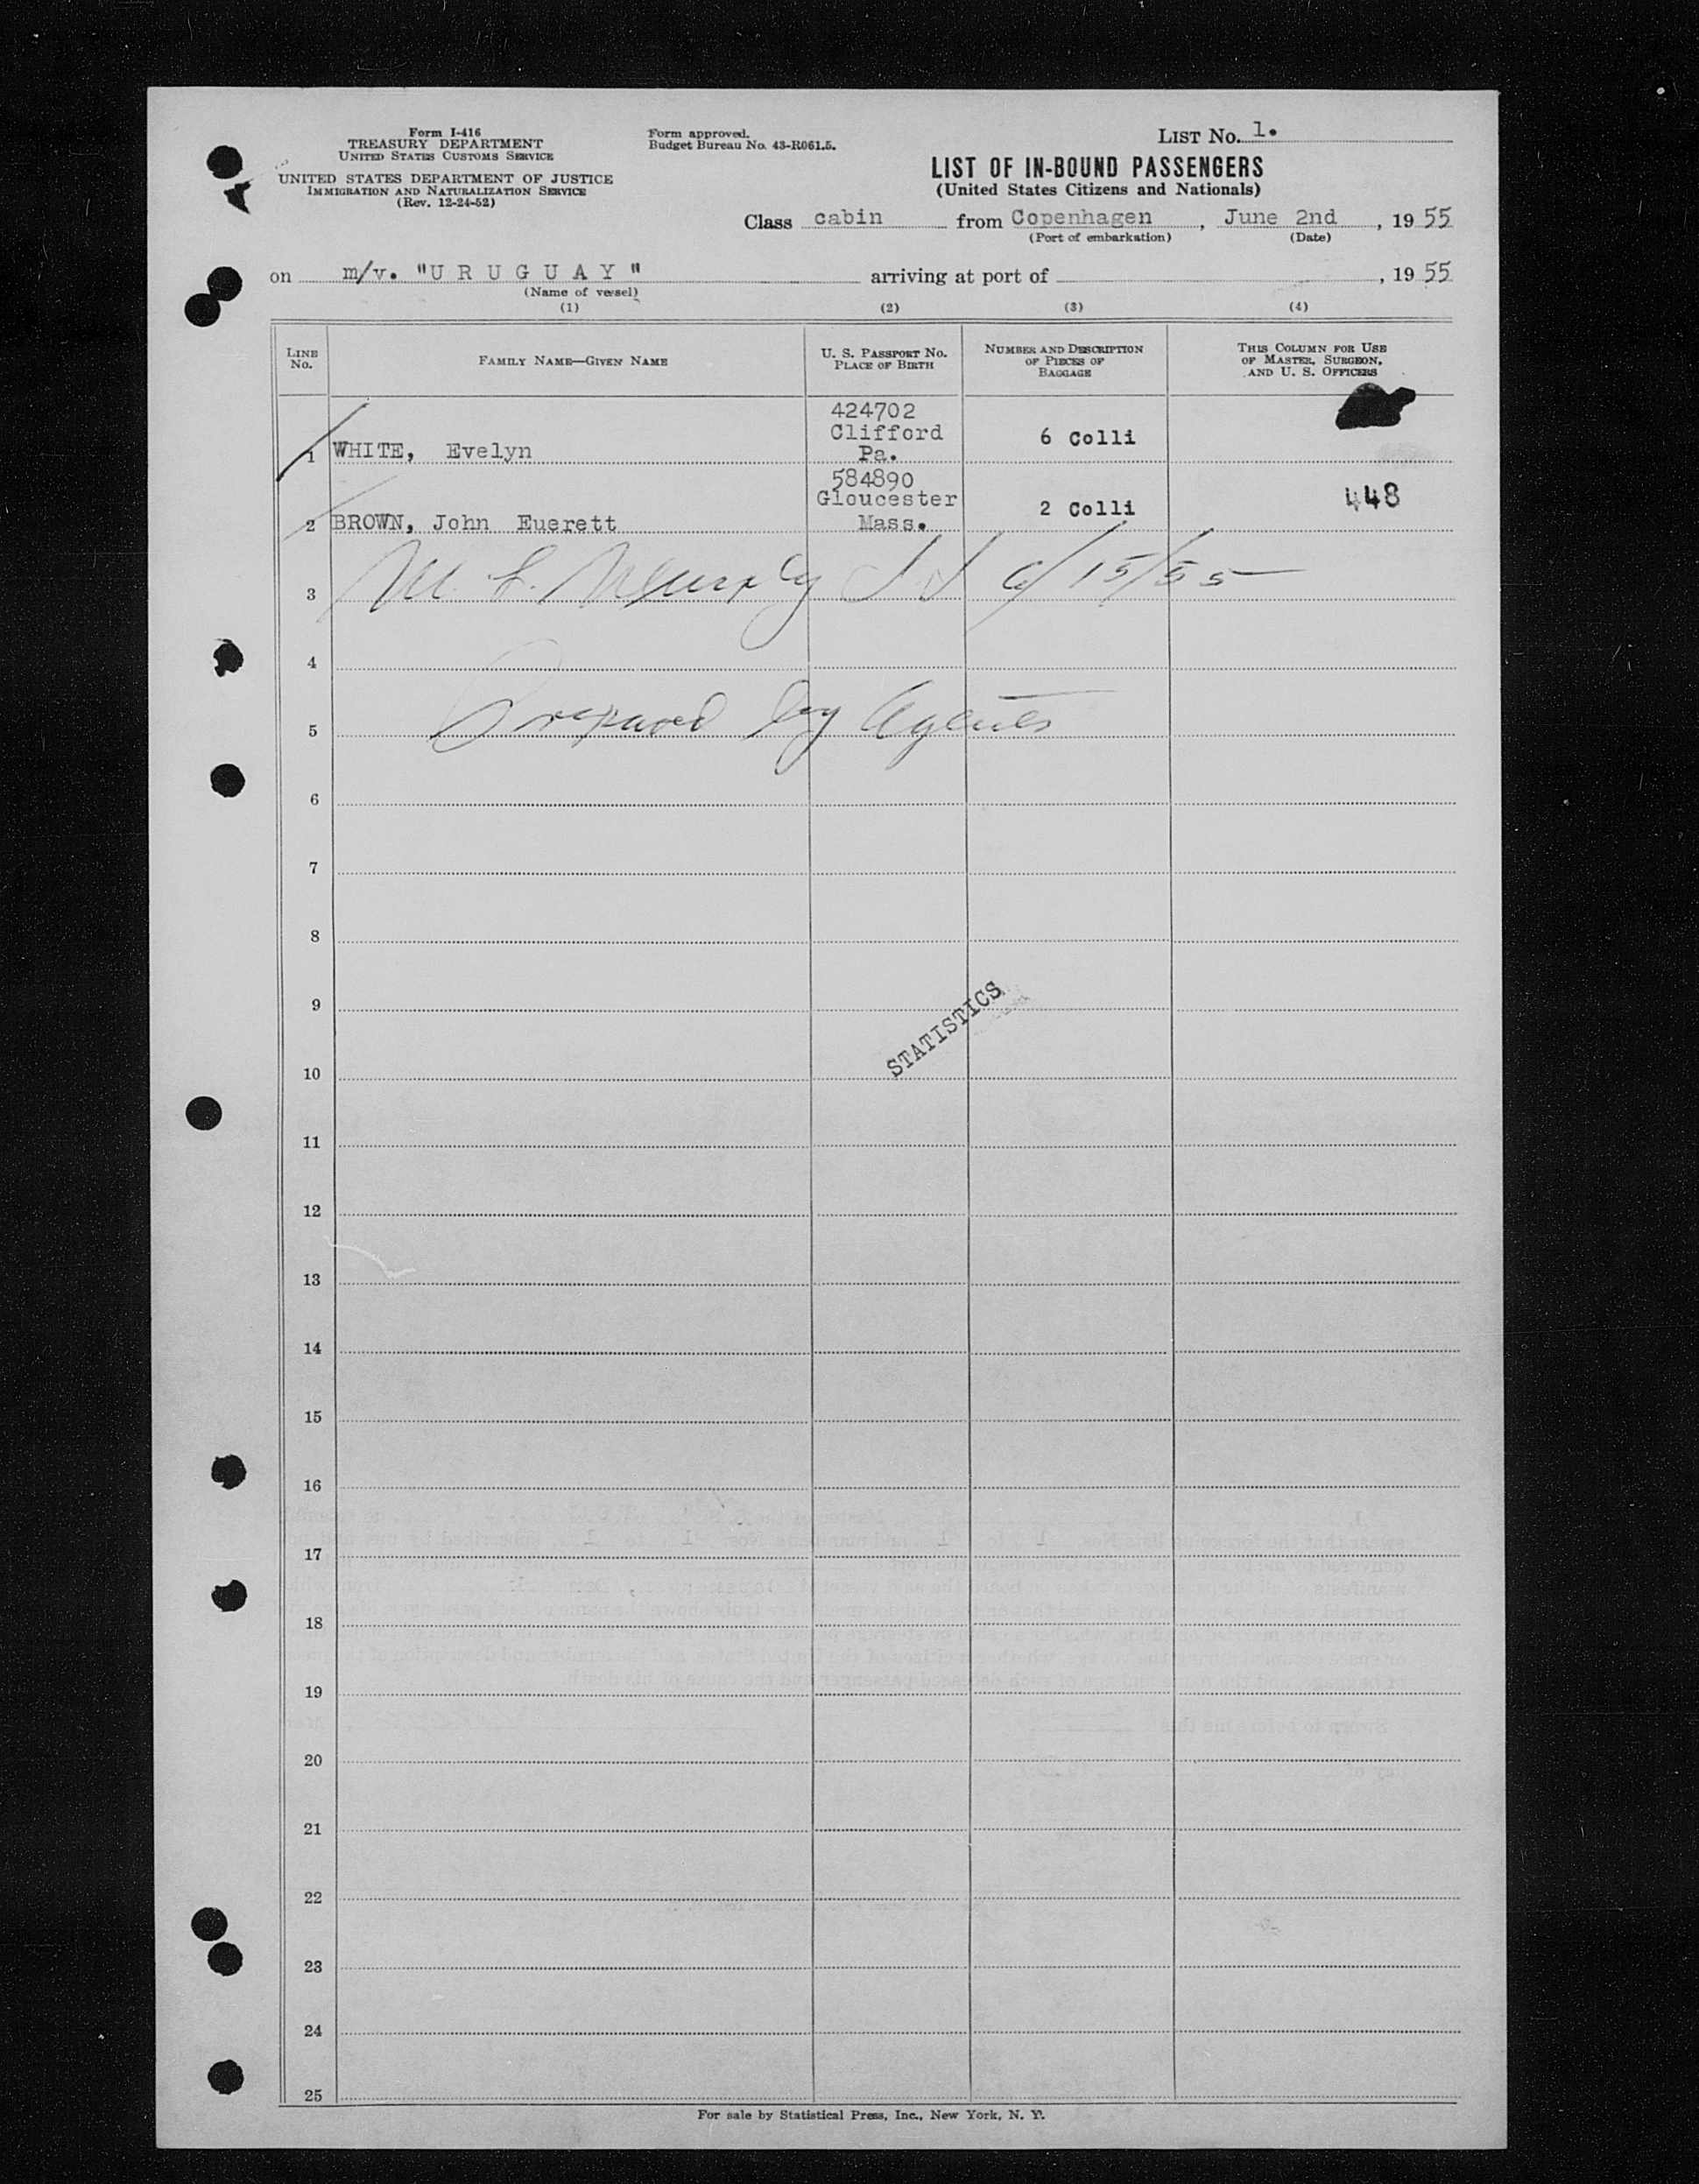 Form I-416
TREASURY DEPARTMENT
UNITED STATES CUSTOMS SERVICE
UNITED STATES DEPARTMENT OF JUSTICE
IMMIGRATION AND NATURALIZATION SERVICE
(Rev. 12-24-52)
Form approved.
Budget Bureau No. 43-R061.5.
LIST No. 1.
LIST OF IN-BOUND PASSENGERS
(United States Citizens and Nationals)
Class cabin from Copenhagen, June 2nd, 1955
(Port of embarkation) (Date)
on m/v. "U R U G U A Y" arriving at port of , 1955
(Name of vessel)
(1) (2) (3) (4)
LINE No. FAMILY NAME—GIVEN NAME U. S. PASSPORT NO. PLACE OF BIRTH NUMBER AND DESCRIPTION OF PIECES OF BAGGAGE THIS COLUMN FOR USE OF MASTER, SURGEON, AND U. S. OFFICERS
424702
Clifford
1 WHITE, Evelyn Pa. 6 Colli
584890
Gloucester
2 BROWN, John Euerett Mass. 2 Colli 448
3 6/15/55
4
5 Prepared by Agents
6
7
8
9
STATISTICS
10
11
12
13
14
15
16
17
18
19
20
21
22
23
24
25
For sale by Statistical Press, Inc., New York, N. Y.